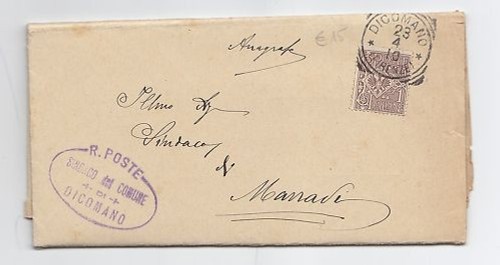 Anagrafe
€ 15
DICOMANO
23
4
10
(FIRENZE)
Illmo Sig
Sindaco
di
Marradi
R. POSTE
SINDACO del COMUNE
DI
DICOMANO